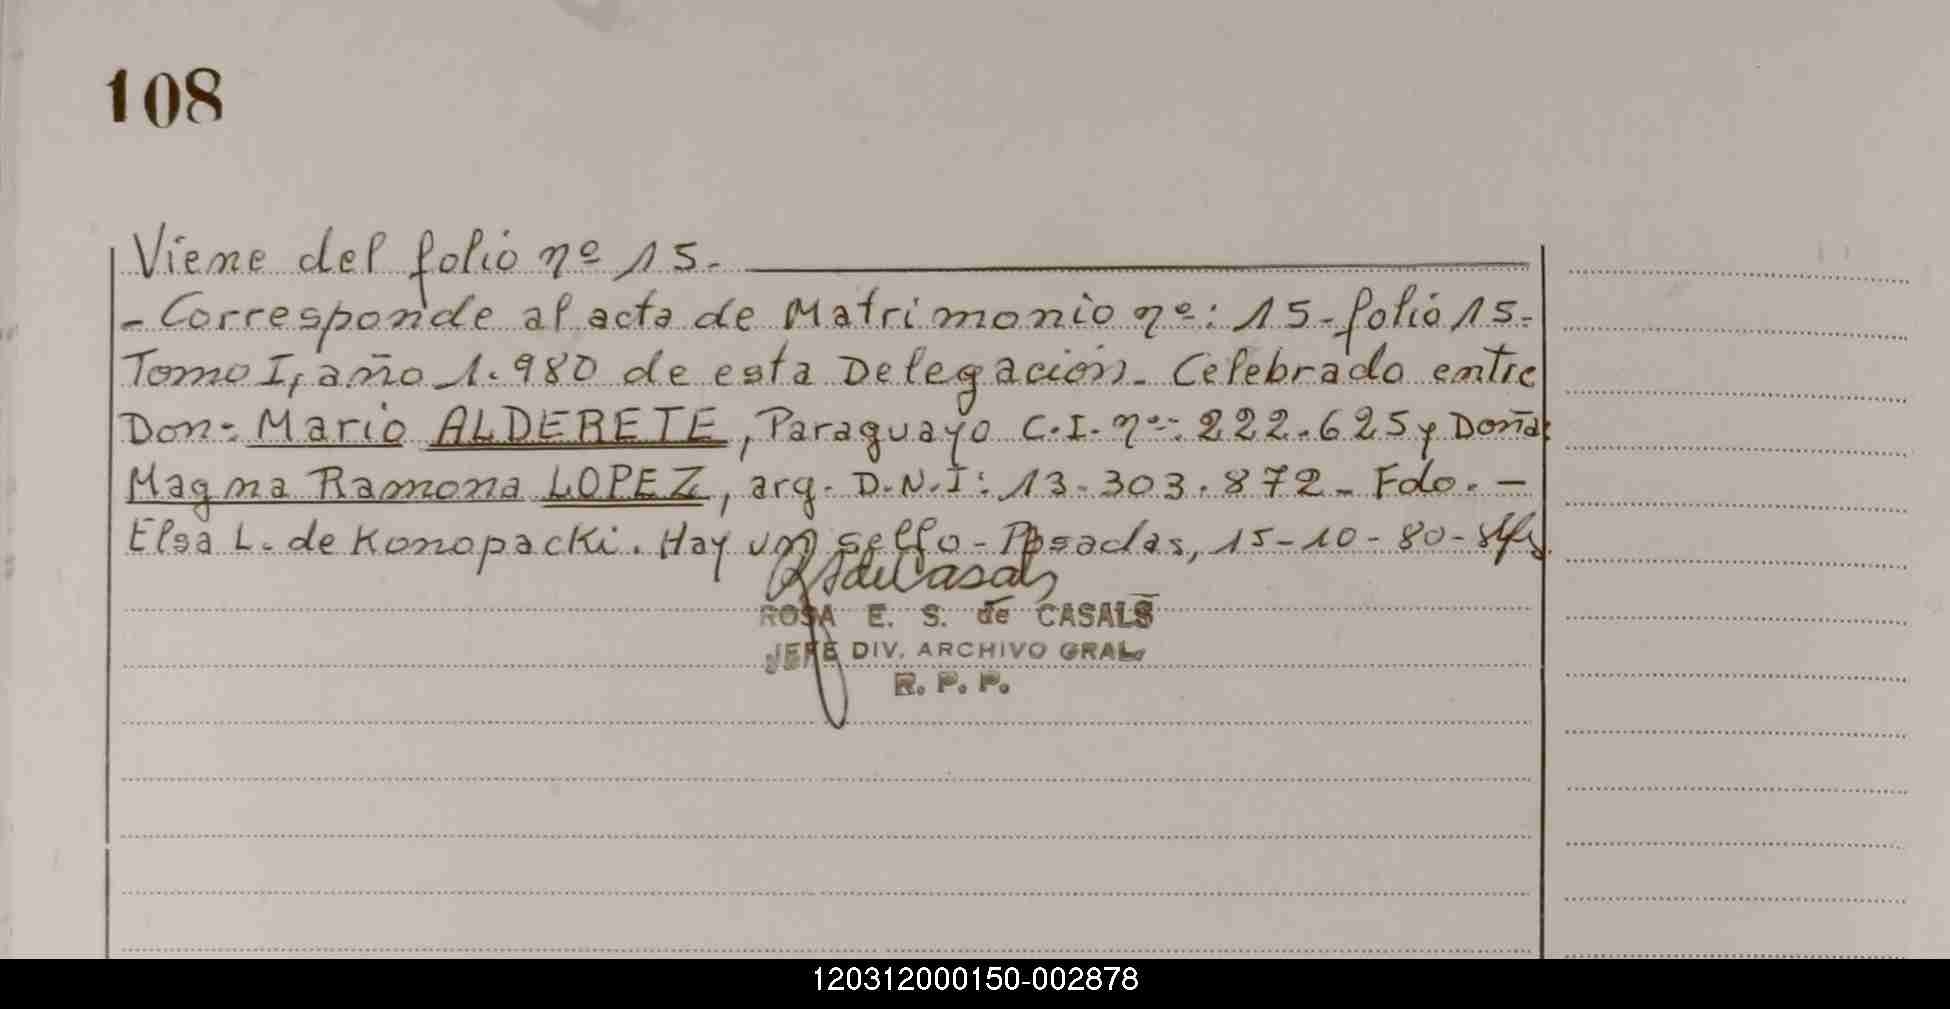 108
Viene del folio nº 15.
- Corresponde al acta de Matrimonio nº: 15 - folio 15 -
Tomo I, año 1.980 de esta Delegación - Celebrado entre
Don: Mario ALDERETE, Paraguayo C.I. nº: 222.625 y Doña:
Magna Ramona LOPEZ, arg. D.N.I: 13.303.872 - Fdo. -
Elsa L. de Konopacki. Hay un sello - Posadas, 15-10-80 -
ROSA E. S. de CASALS
JEFE DIV. ARCHIVO GRAL
R. P. P.
120312000150-002878